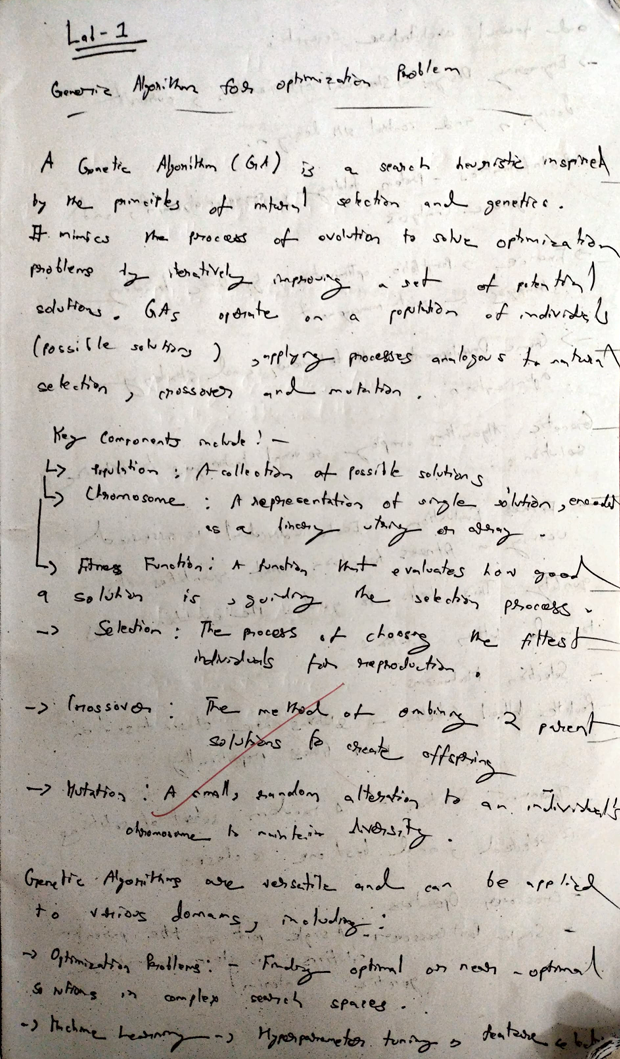 Lab-1
Genetic Algorithm for optimization Problem
A Genetic Algorithm (GA) is a search heuristic inspired
by the principles of natural selection and genetics.
It mimics the process of evolution to solve optimization
problems by iteratively improving a set of potential
solutions. GAs operate on a population of individuals
(possible solutions), applying processes analogous to natural
selection, crossover and mutation.
Key Components include: -
↳ Population: A collection of possible solutions
↳ Chromosome: A representation of single solution, encoded
as a binary string or array.
↳ Fitness Function: A function that evaluates how good
a solution is, guiding the selection process.
-> Selection: The process of choosing the fittest
individuals for reproduction.
-> Crossover: The method of combining 2 parent
solutions to create offspring
-> Mutation: A small, random alteration to an individual's
chromosome to maintain diversity.
Genetic Algorithms are versatile and can be applied
to various domains, including:
-> Optimization Problems: - Finding optimal or near-optimal
solutions in complex search spaces.
-> Machine Learning -> Hyperparameter tuning, feature